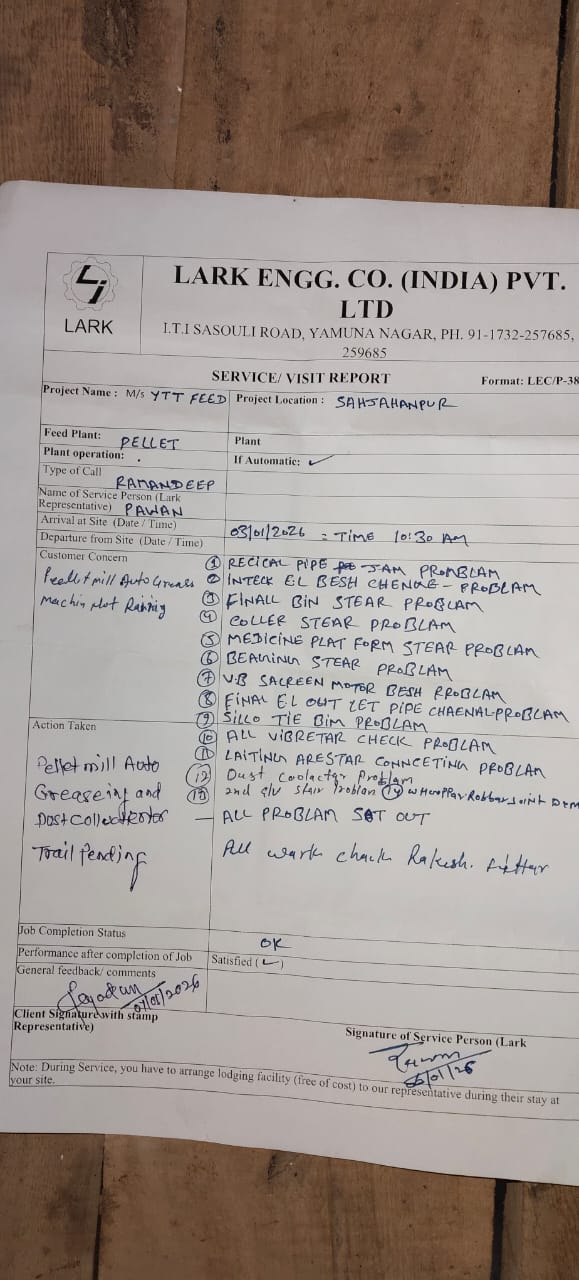 LARK
LARK ENGG. CO. (INDIA) PVT.
LTD
I.T.I SASOULI ROAD, YAMUNA NAGAR, PH. 91-1732-257685,
259685
SERVICE/ VISIT REPORT Format: LEC/P-38
Project Name : M/s YTT FEED Project Location : SAHJAHANPUR
Feed Plant: PELLET Plant
Plant operation: . If Automatic: ✓
Type of Call
RAMANDEEP
Name of Service Person (Lark
Representative) PAWAN
Arrival at Site (Date / Time) 03/01/2026 : TIME 10:30 AM
Departure from Site (Date / Time)
Customer Concern
Peellet mill Auto Greass
Machin Not Raning
① RECICAL PIPE JAM PROMBLAM
② INTECK EL BESH CHENGE - PROBLAM
③ FINALL BIN STEAR PROBLAM
④ COLLER STEAR PROBLAM
⑤ MEDICINE PLAT FORM STEAR PROBLAM
⑥ STEAR PROBLAM
⑦ V.B SACREEN MOTOR BESH PROBLAM
⑧ FINAL EL OUT LET PIPE CHAENAL-PROBLAM
⑨ SILLO TIE BIM PROBLAM
⑩ ALL VIBRETAR CHECK PROBLAM
⑪ LAITING ARESTAR CONNCETING PROBLAM
⑫ Dust coolactar Problam
⑬ 2nd stair Problan ⑭ Robbar Joint
Action Taken
Pellet mill Auto
Greaseing and
Dost Collecttor
Trail Pending
— ALL PROBLAM SOT OUT
All wark chack Rakesh. fittar
Job Completion Status OK
Performance after completion of Job Satisfied (✓)
General feedback/ comments
/2026
Client Signature with stamp
Representative)
Signature of Service Person (Lark
/01/26
Note: During Service, you have to arrange lodging facility (free of cost) to our representative during their stay at
your site.